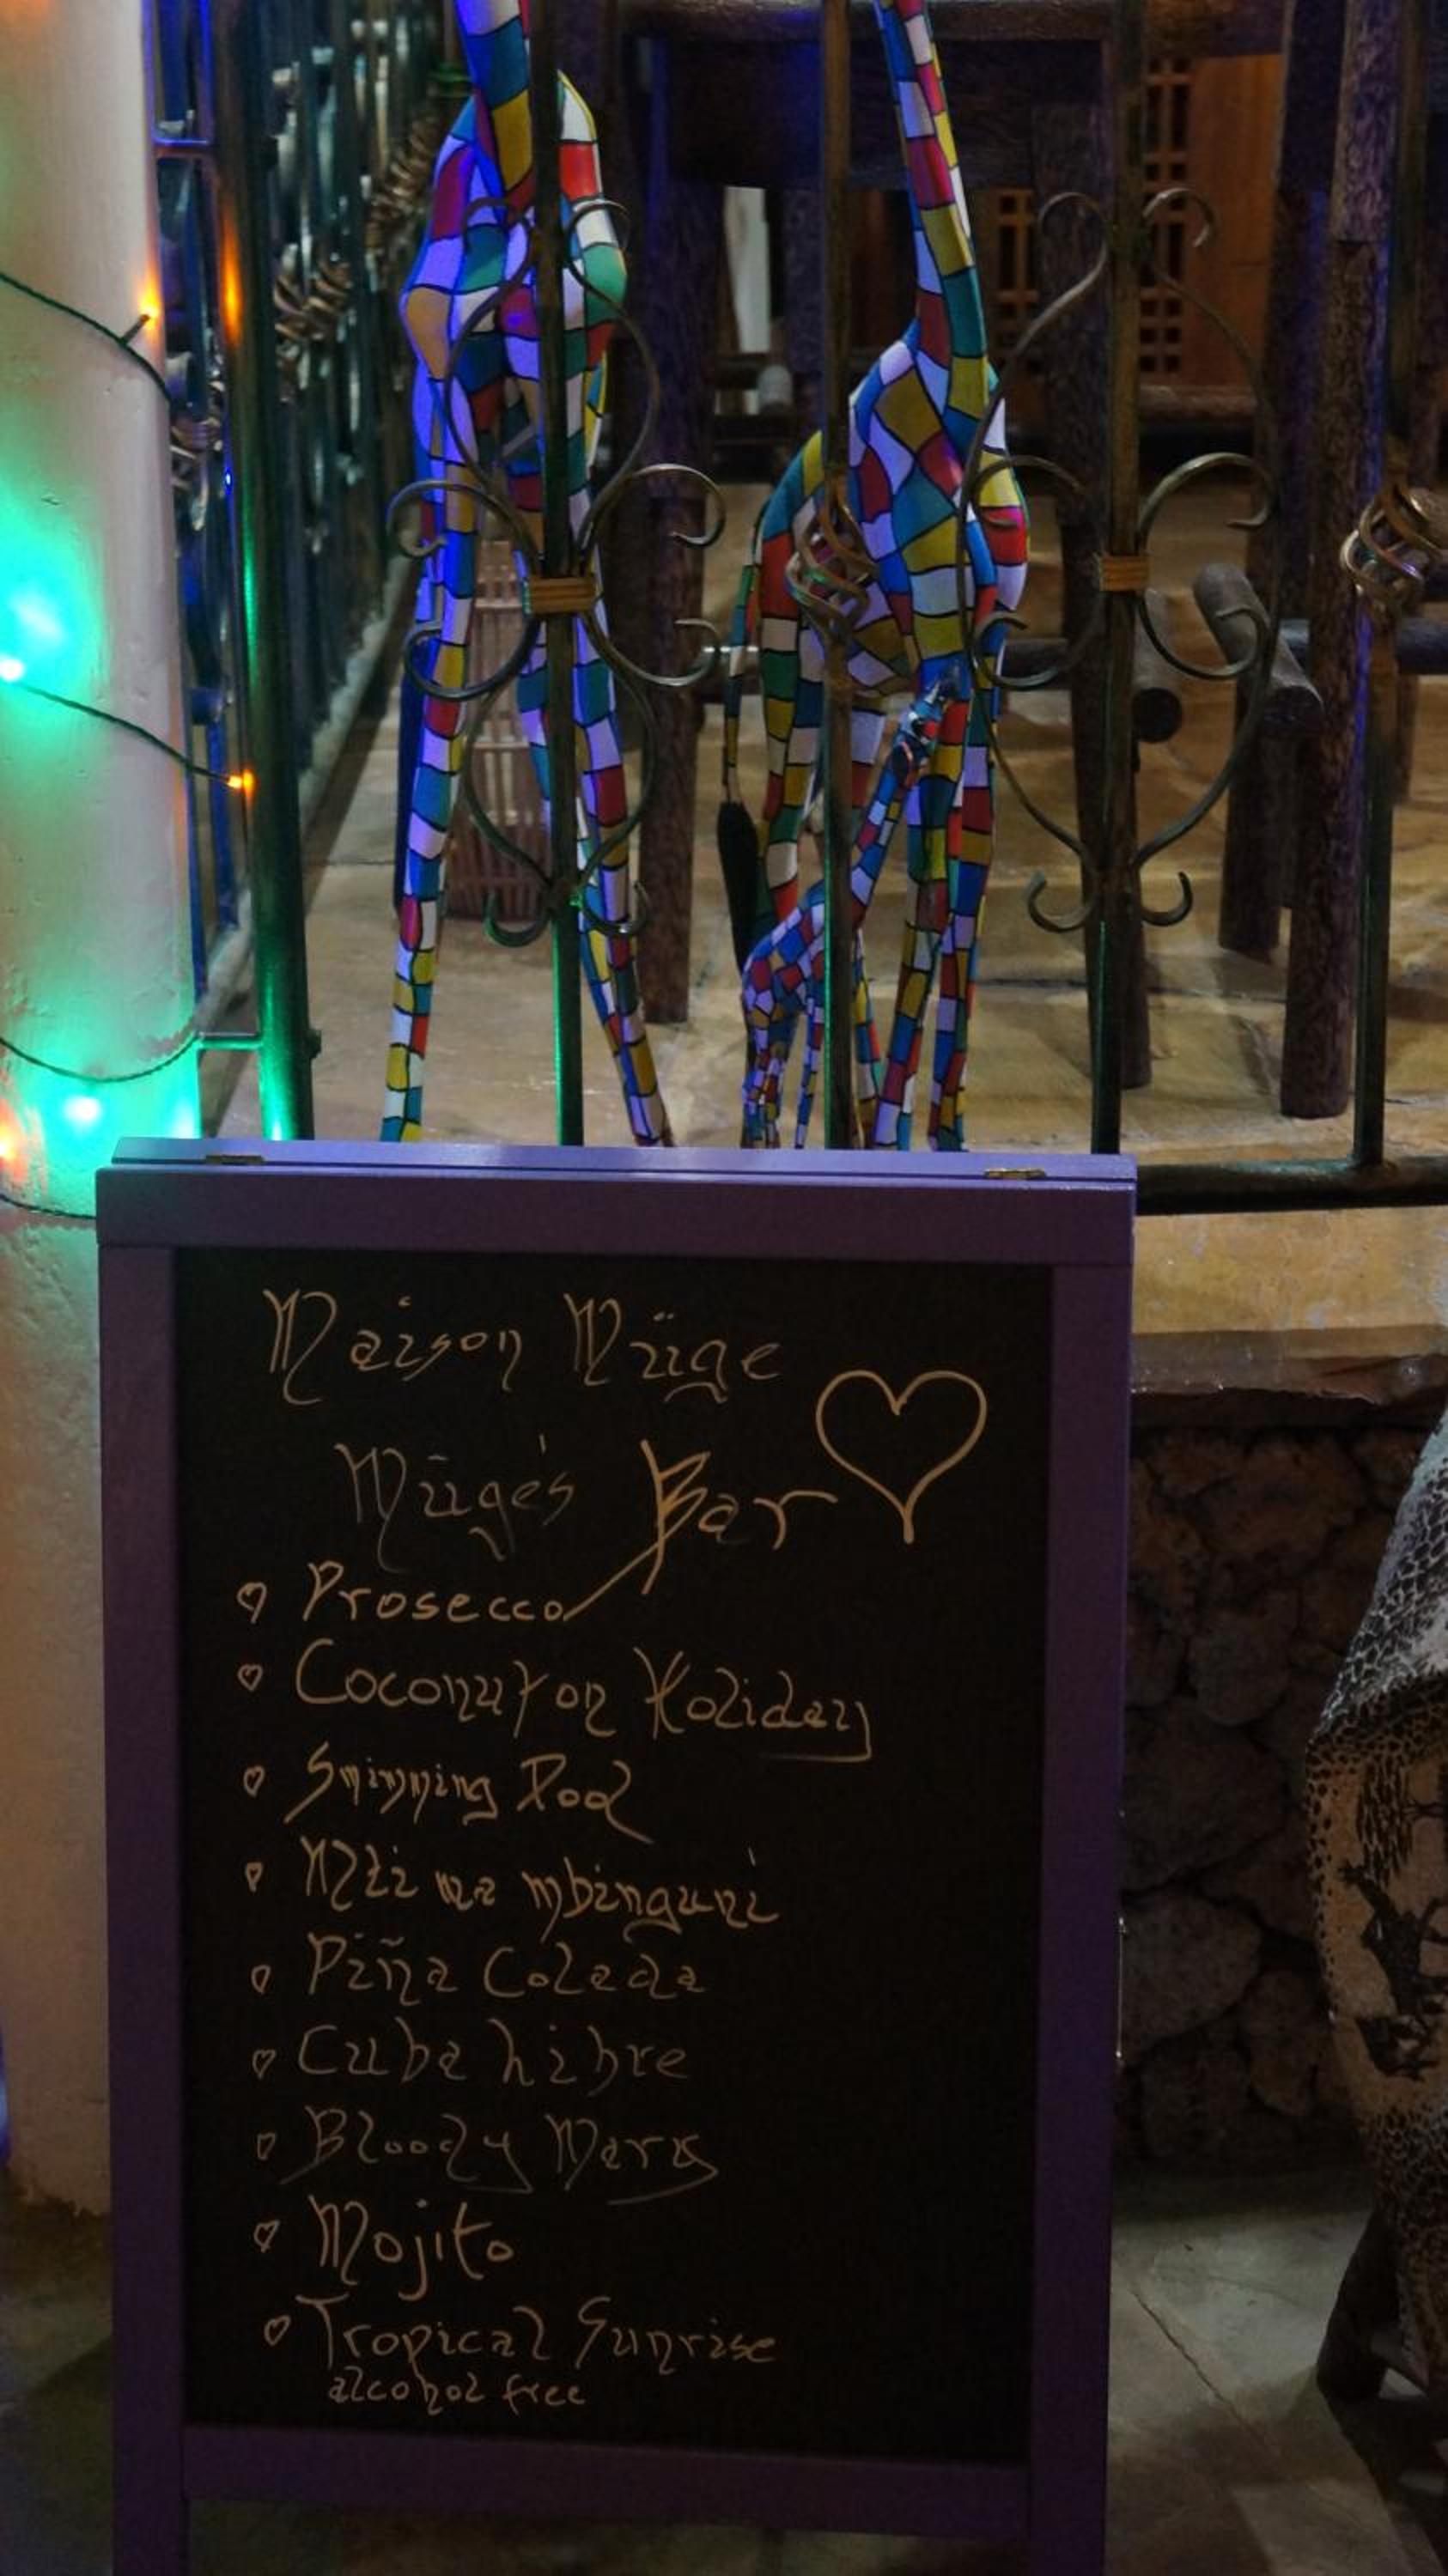 Maison Müge
Müge's Bar
Prosecco
Coconut on Holiday
Swimming Pool
Mti wa mbinguni
Piña Colada
Cuba Libre
Bloody Mary
Mojito
Tropical Sunrise
alcohol free